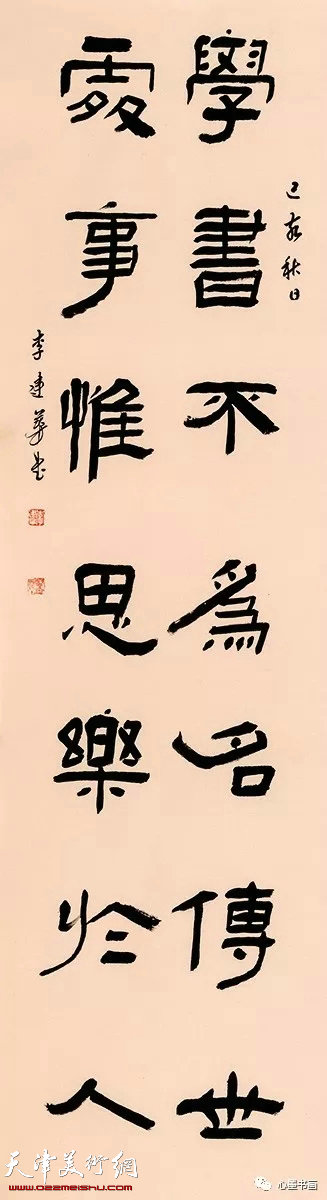 學書不為名傳世
己亥秋日
處事惟思樂於人
李建華書
天津美術網
www.022meishu.com
心畫书画